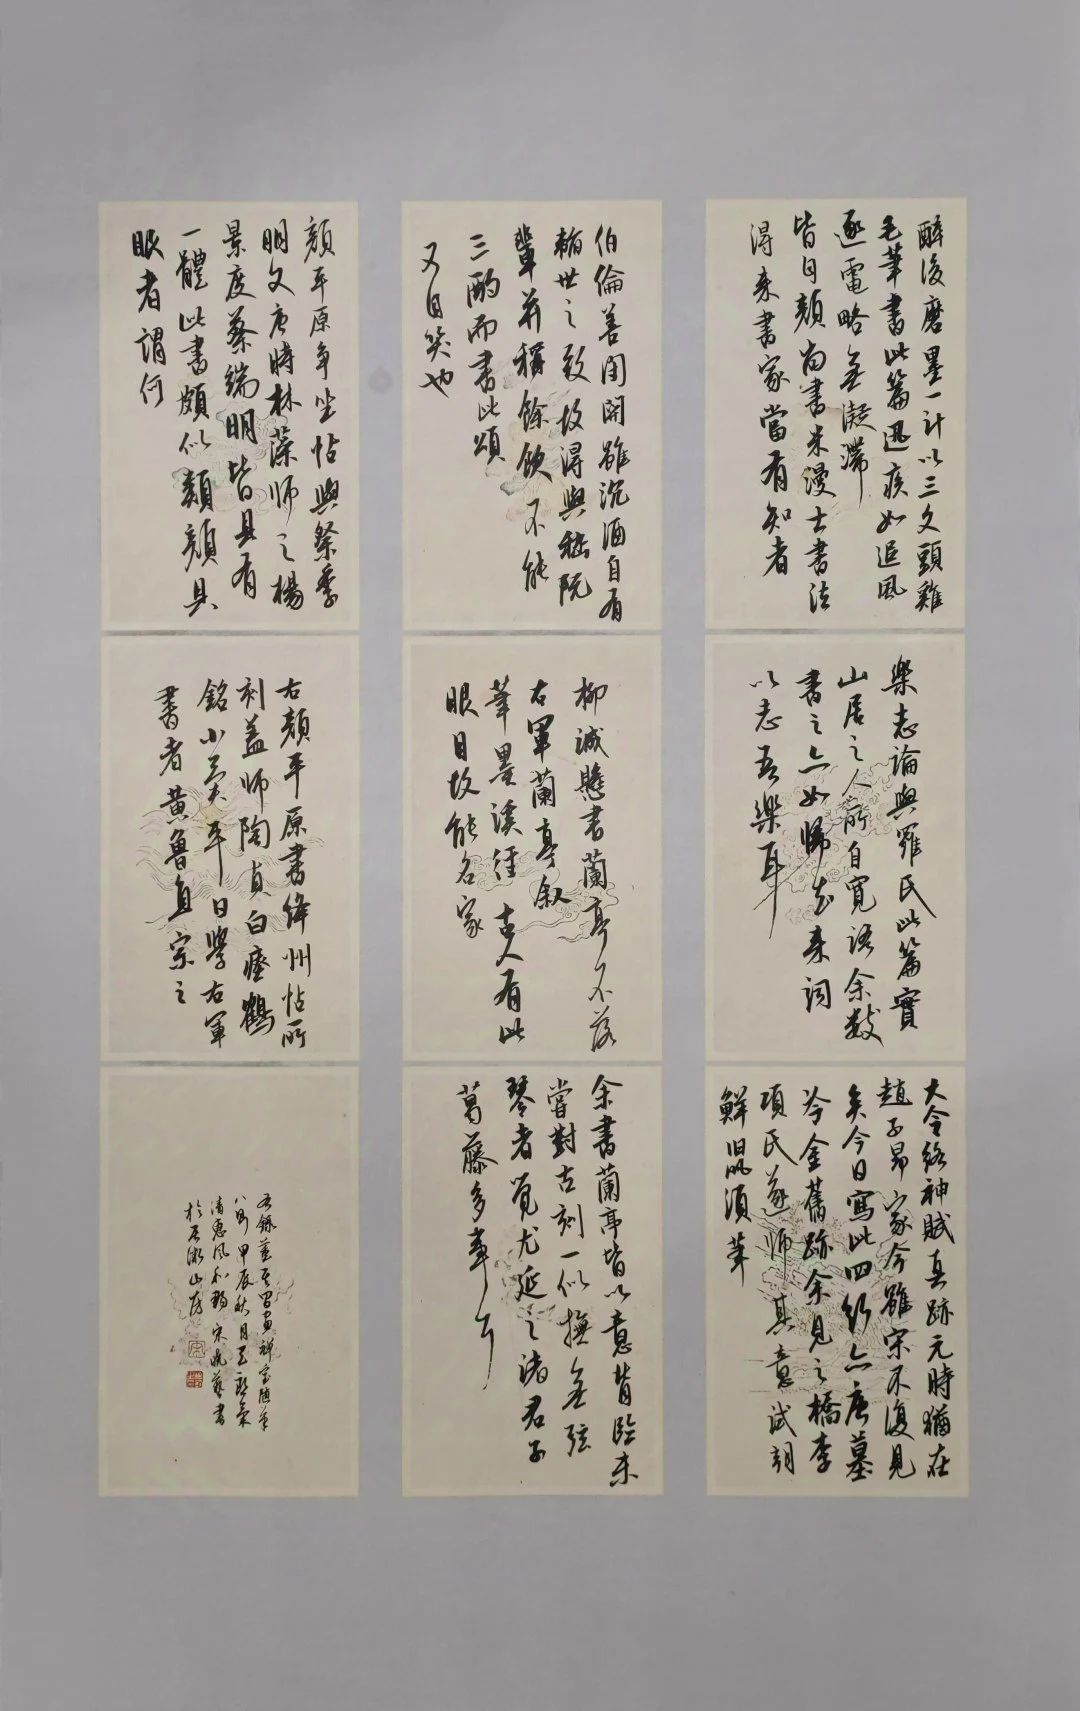 醉後磨墨一計以三文頭雞
毛筆書此篇迅疾如追風
逐電略無凝滯
皆自顏尚書米漫士書法
得來書家當有知者
樂志論與羅氏此篇實
山居之人所自寬語余數
書之亦如歸去來詞
以志吾樂耳
大令洛神賦真跡元時猶在
趙子昂家今雖宋不復見
矣今日寫此四行亦唐摹
冷金舊跡余見之檇李
項氏遂師其意試朝
鮮鼠須筆
伯倫善閉關雖沉酒自有
輶世之致故得與嵇阮
輩并稱餘飲不能
三酌而書此頌
又自笑也
柳誠懸書蘭亭不落
右軍蘭亭叙
筆墨溪徑古人有此
眼目故能名家
余書蘭亭皆以意背臨未
嘗對古刻一似撫無弦
琴者覺尤延之諸君子
葛藤多事
顏平原爭坐帖與祭季
明文唐時林藻師之楊
景度蔡端明皆具有
一體此書頗似類顏具
眼者謂何
右顏平原書絳州帖所
刻蓋師陶貞白瘞鶴
銘小異平日學右軍
書者黃魯直宗之
右錄董其昌畫禪室隨筆
八則甲辰秋月天朗氣
清惠風和暢宋
書
山房